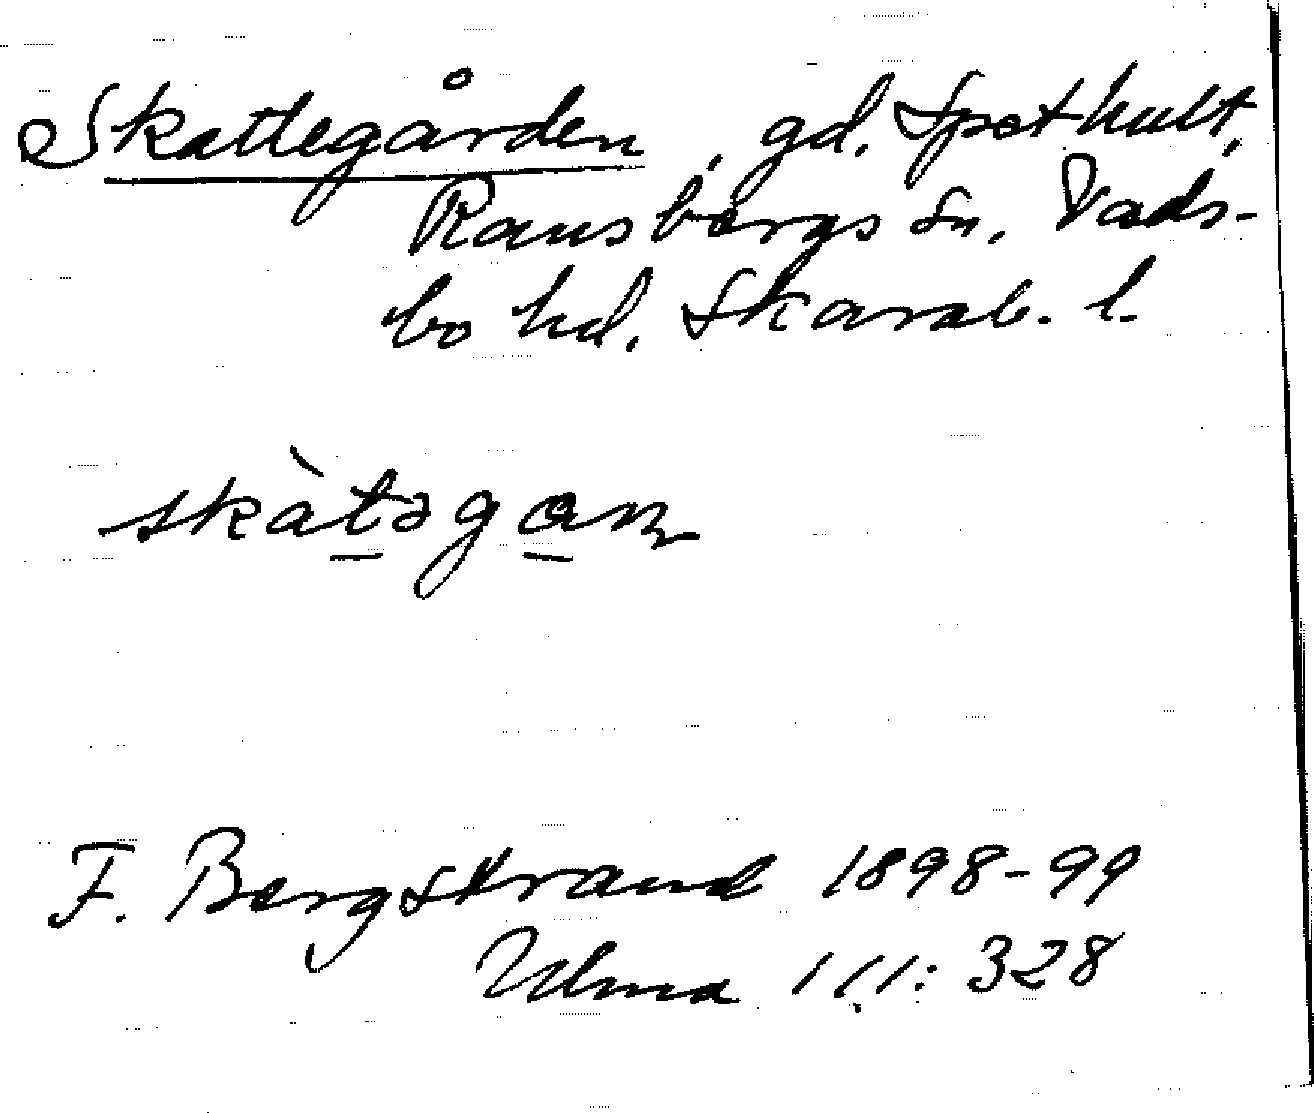 Skattegården, gd. Spethult,
Ransbergs sn, Vads-
bo hd. Skarab. l.
skàtəgan
F. Bergstrand 1898-99
Ulma 111:328